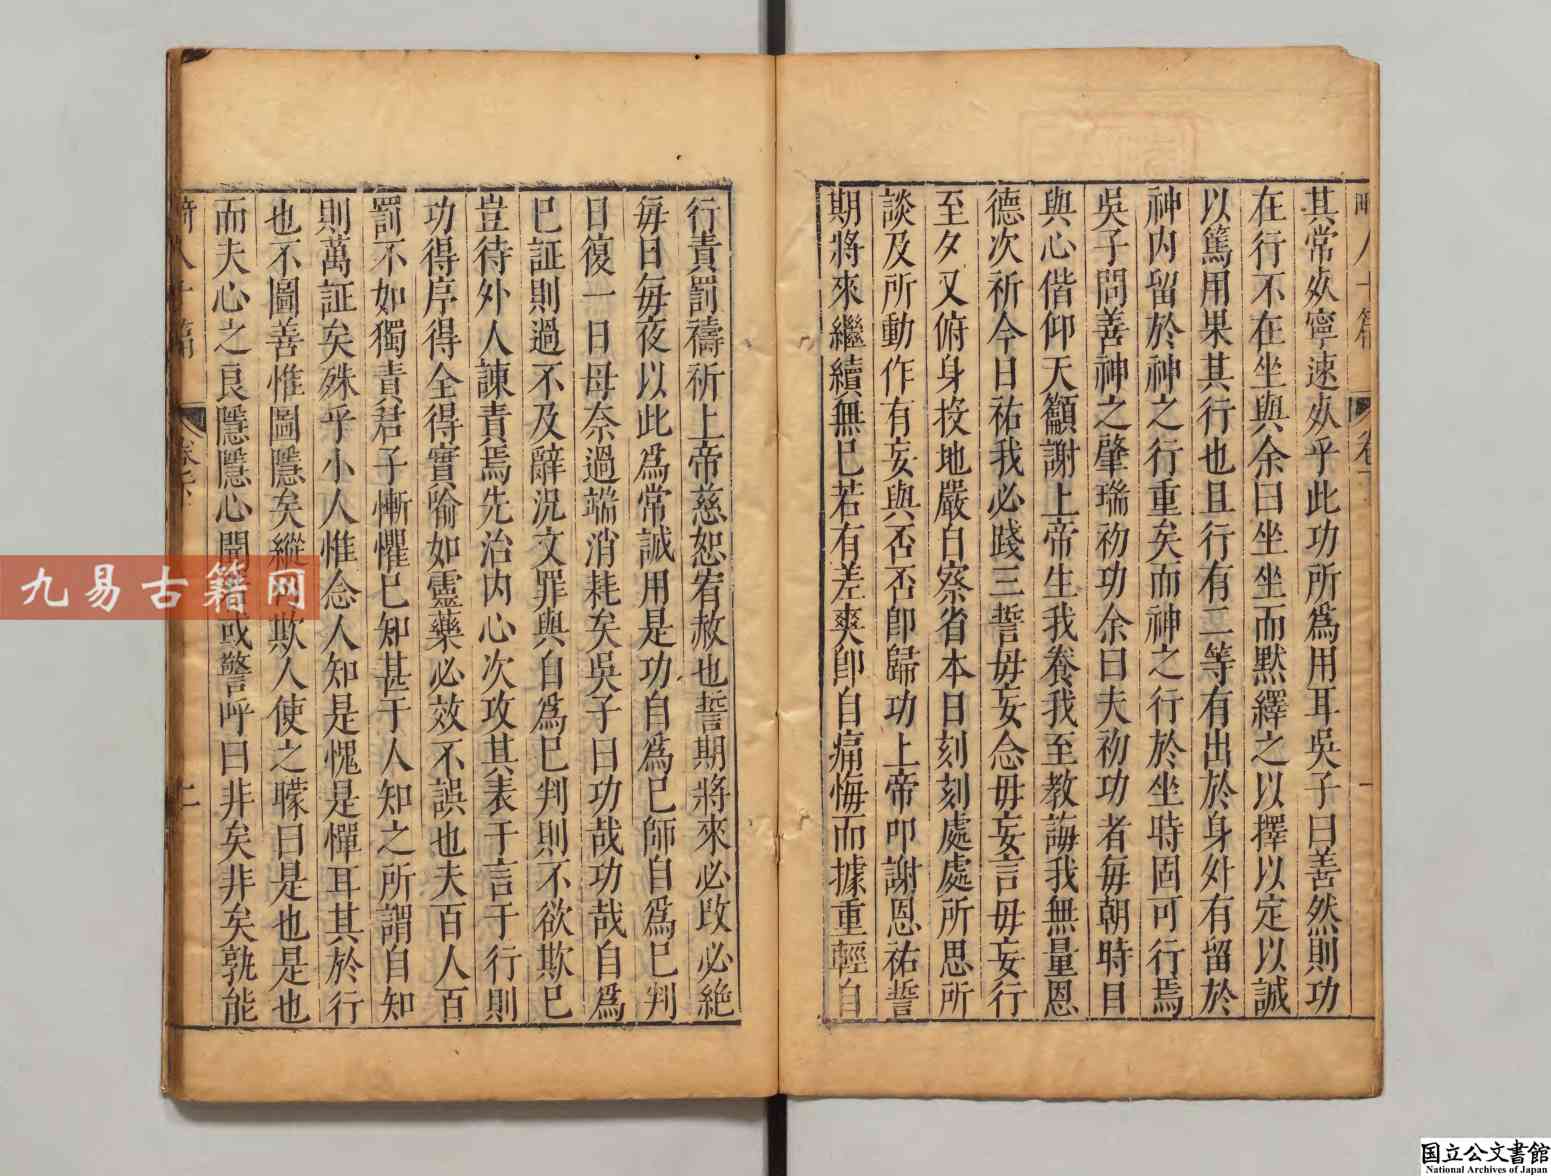 其常炏寧速炏乎此功所爲用耳吳子曰善然則功
在行不在坐與余曰坐坐而默繹之以擇以定以誠
以篤用果其行也且行有二等有出於身外有留於
神內留於神之行重矣而神之行於坐時固可行焉
吳子問善神之肇瑞初功余曰夫初功者每朝時目
與心偕仰天籲謝上帝生我養我至教誨我無量恩
德次祈今日祐我必踐三誓毋妄念毋妄言毋妄行
至夕又俯身投地嚴自察省本日刻刻處處所思所
談及所動作有妄與否否卽歸功上帝叩謝恩祐誓
期將來繼續無已若有差爽卽自痛悔而據重輕自
行責罰禱祈上帝慈恕宥赦也誓期將來必改必絶
每日每夜以此爲常誡用是功自爲己師自爲己判
日復一日毋奈過端消耗矣吳子曰功哉功哉自爲
已証則過不及辭況文罪與自爲已判則不欲欺已
豈待外人諫責焉先治內心次攻其表于言于行則
功得序得全得實喻如靈藥必效不誤也夫百人百
罰不如獨責君子慚懼已知甚于人知之所謂自知
則萬証矣殊乎小人惟念人知是愧是憚耳其於行
也不圖善惟圖隱矣縱 欺人使之矇曰是也是也
而夫心之良隱隱心開 或警呼曰非矣非矣孰能
卷七
二
九易古籍网
国立公文書館
National Archives of Japan